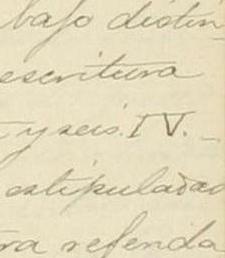 bajo distin
escritura
y seis. IV. _
estipuladas
ra refenda